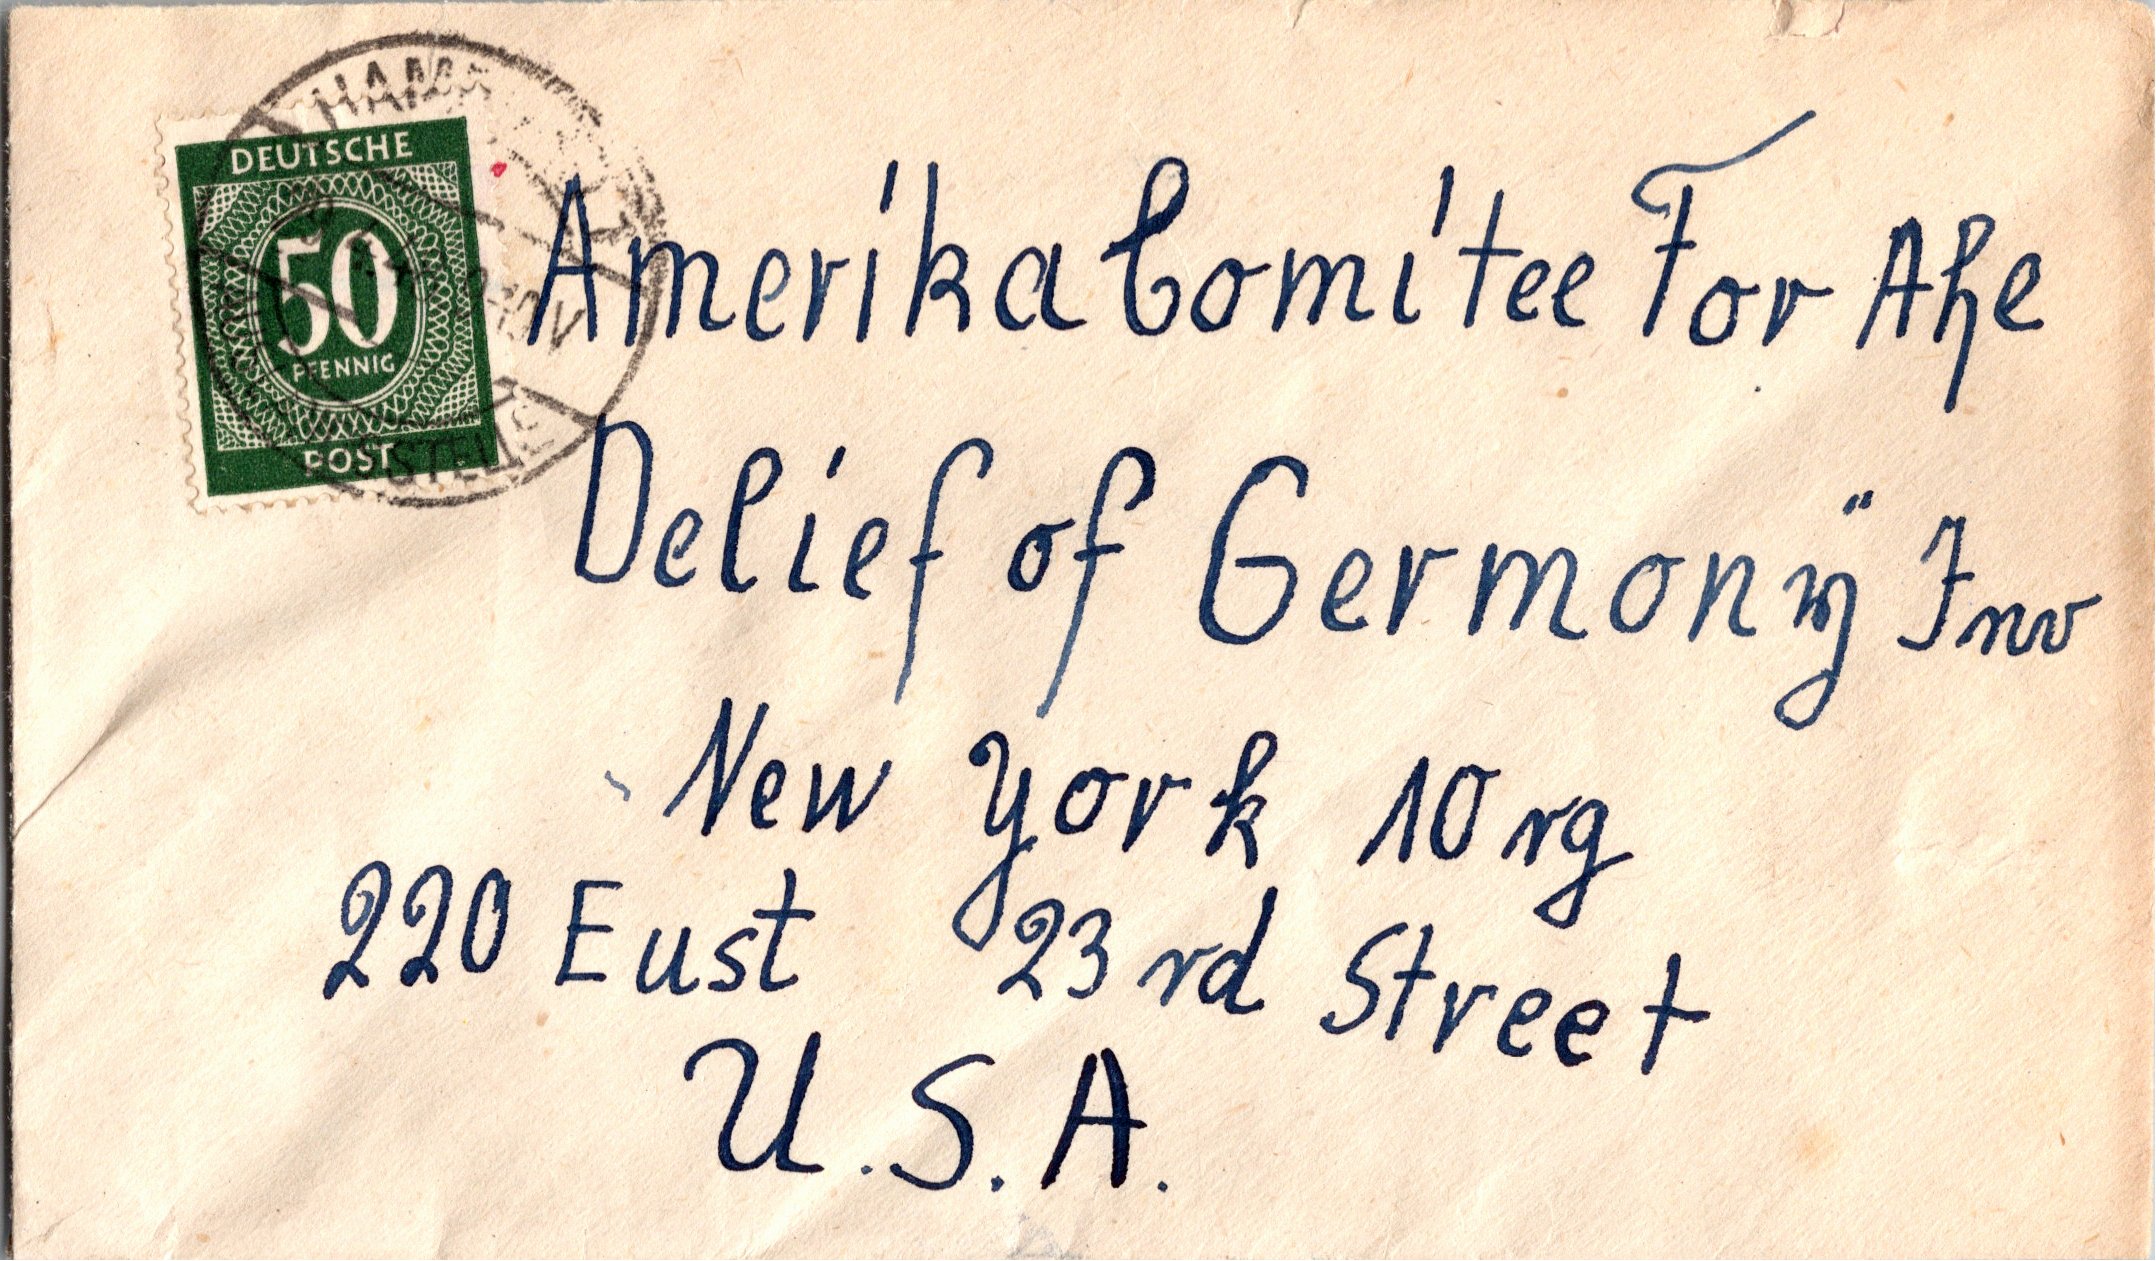 DEUTSCHE
50
PFENNIG
POST
Amerika Comitee For Ahe
Delief of Germony Inv
New York 10 rg
220 Eust 23 rd Street
U.S.A.